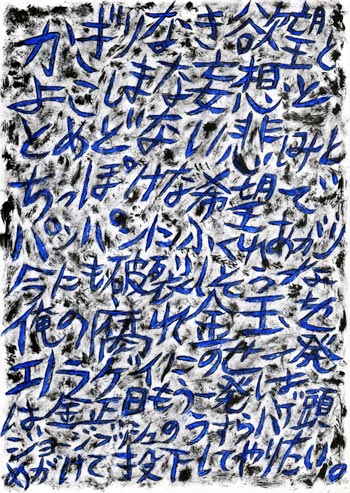 かぎりなき欲望と
よこしまな妄想と
とめどない悲しみと
ちっぽけな希望で
パンパンにふくれあがり
今にも破裂しそうな
俺の腐れ金玉を
エノラゲイにのせて一発
は金正日もう一発は
ジョージブッシュのうすらハゲ頭
めがけて投下してやりたい。